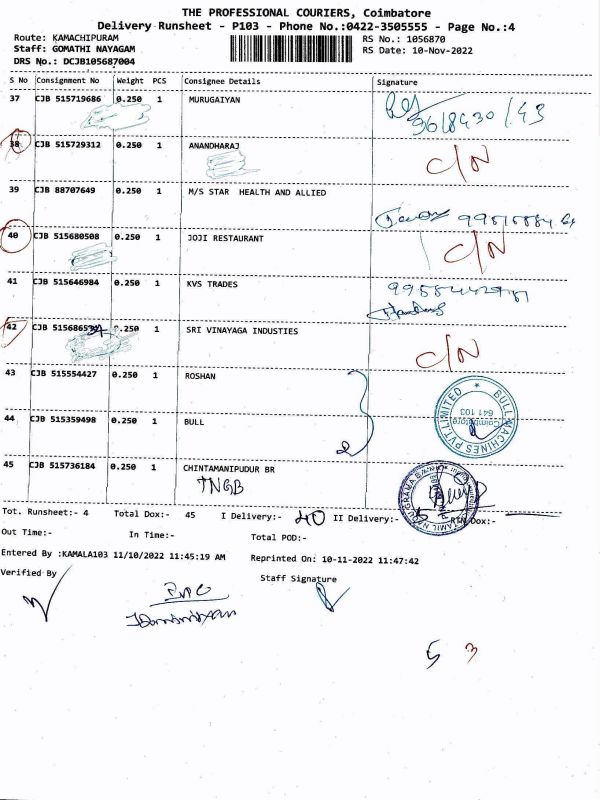 THE PROFESSIONAL COURIERS, Coimbatore
Delivery Runsheet - P103 - Phone No.:0422-3505555 - Page No.:4
Route: KAMACHIPURAM RS No.: 1056870
Staff: GOMATHI NAYAGAM RS Date: 10-Nov-2022
DRS No.: DCJB105687004
S No Consignment No Weight PCS Consignee Details Signature
37 CJB 515719686 0.250 1 MURUGAIYAN
38 CJB 515729312 0.250 1 ANANDHARAJ C/N
39 CJB 88707649 0.250 1 M/S STAR HEALTH AND ALLIED
40 CJB 515680508 0.250 1 JOJI RESTAURANT C/N
41 CJB 515646984 0.250 1 KVS TRADES
42 CJB 0.250 1 SRI VINAYAGA INDUSTIES C/N
43 CJB 515554427 0.250 1 ROSHAN
44 CJB 515359498 0.250 1 BULL 2
BULL MACHINES PVT LIMITED
Coimbatore
641 103
45 CJB 515736184 0.250 1 CHINTAMANIPUDUR BR
TNGB
Tot. Runsheet:- 4 Total Dox:- 45 I Delivery:- 40 II Delivery:- RTN Dox:-
Out Time:- In Time:- Total POD:-
Entered By :KAMALA103 11/10/2022 11:45:19 AM Reprinted On: 10-11-2022 11:47:42
Verified By Staff Signature
5 3